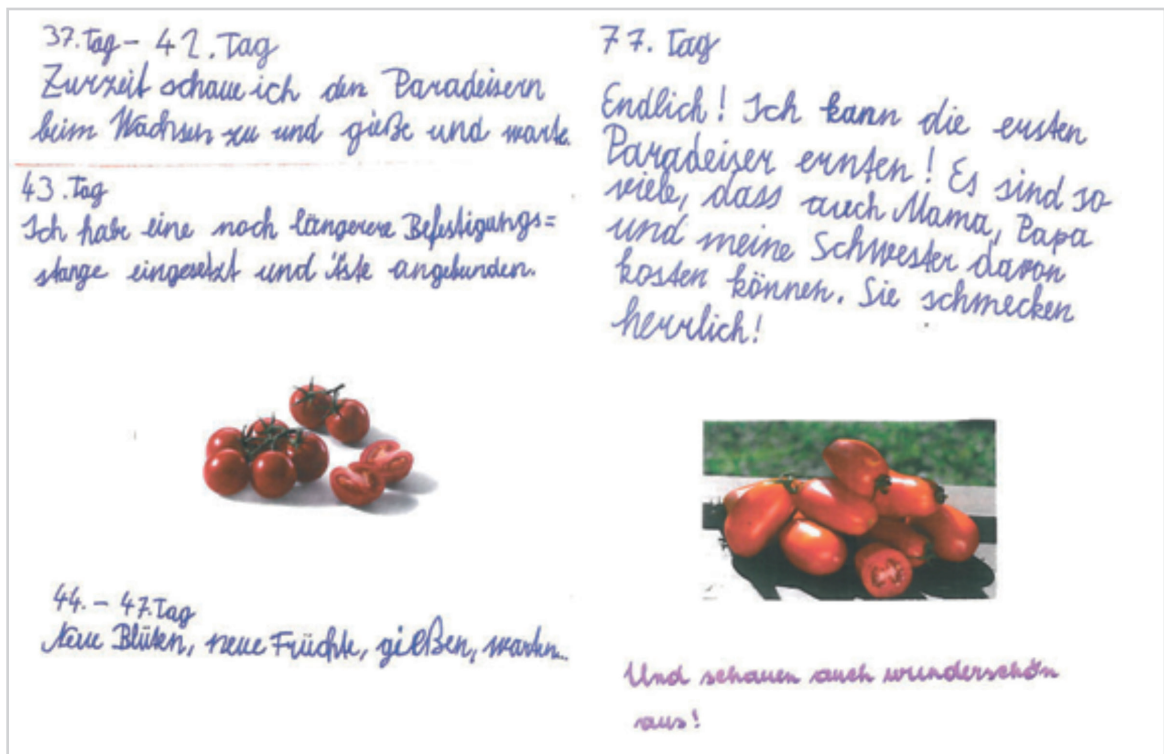 37. Tag – 42. Tag
Zurzeit schaue ich den Paradeisern
beim Wachsen zu und gieße und warte.
43. Tag
Ich habe eine noch längere Befestigungs=
stange eingesetzt und Äste angebunden.
44. – 47. Tag
Neue Blüten, neue Früchte, gießen, warten...
77. Tag
Endlich! Ich kann die ersten
Paradeiser ernten! Es sind so
viele, dass auch Mama, Papa
und meine Schwester davon
kosten können. Sie schmecken
herrlich!
Und schauen auch wunderschön
aus!